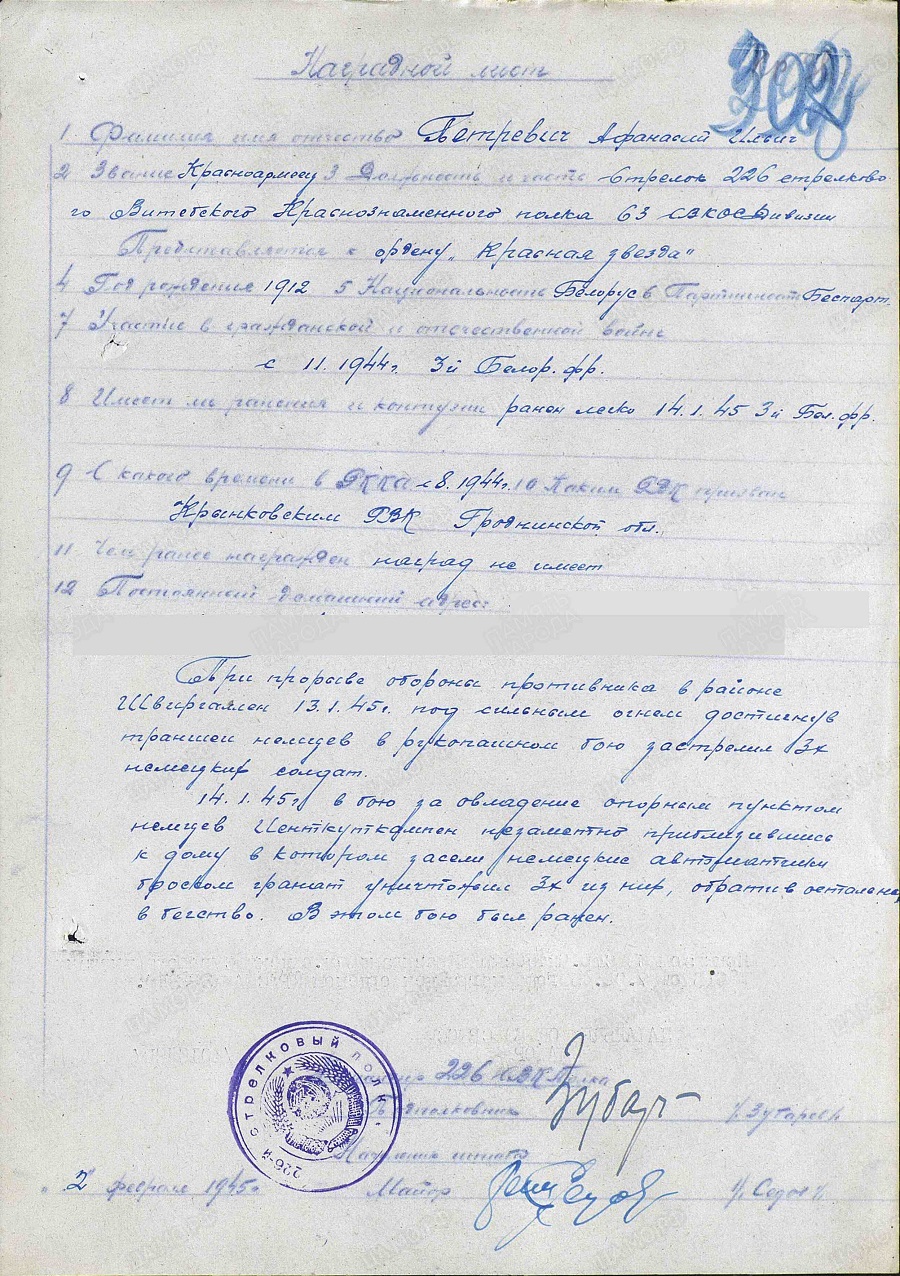 308
Наградной лист
1 Фамилия имя отчество Петревич Афанасий Ильич
2 Звание Красноармеец 3 Должность и часть Стрелок 226 стрелково
го Витебского Краснознаменного полка 63 СВКОС Дивизии
Представляется к ордену „Красная звезда"
4 Год рождения 1912 5 Национальность Белорус 6 Партийность Беспарт.
7 Участие в гражданской и отечественной войне
с 11.1944г. 3й Белор. фр.
8 Имеет ли ранения и контузии ранен легко 14.1.45 3й Бел. фр.
9 С какого времени в РККА с 8.1944г. 10 Каким РВК призван
Крынковским РВК Гроднинской обл.
11 Чем ранее награжден наград не имеет
12 Постоянный домашний адрес:
При прорыве обороны противника в районе
Швиргаллен 13.1.45г. под сильным огнем достигнув
траншеи немцев в рукопашном бою застрелил 3х
немецких солдат.
14.1.45г. в бою за овладение опорным пунктом
немцев Центкуткампен незаметно приблизившись
к дому в котором засели немецкие автоматчики
броском гранат уничтожил 3х из них, обратив остальных
в бегство. В этом бою был ранен.
226 СВК Полка
Подполковник /Зубарев/
Начальник штаба
"2" февраля 1945г. Майор /Седов/
226-й стрелковый полк